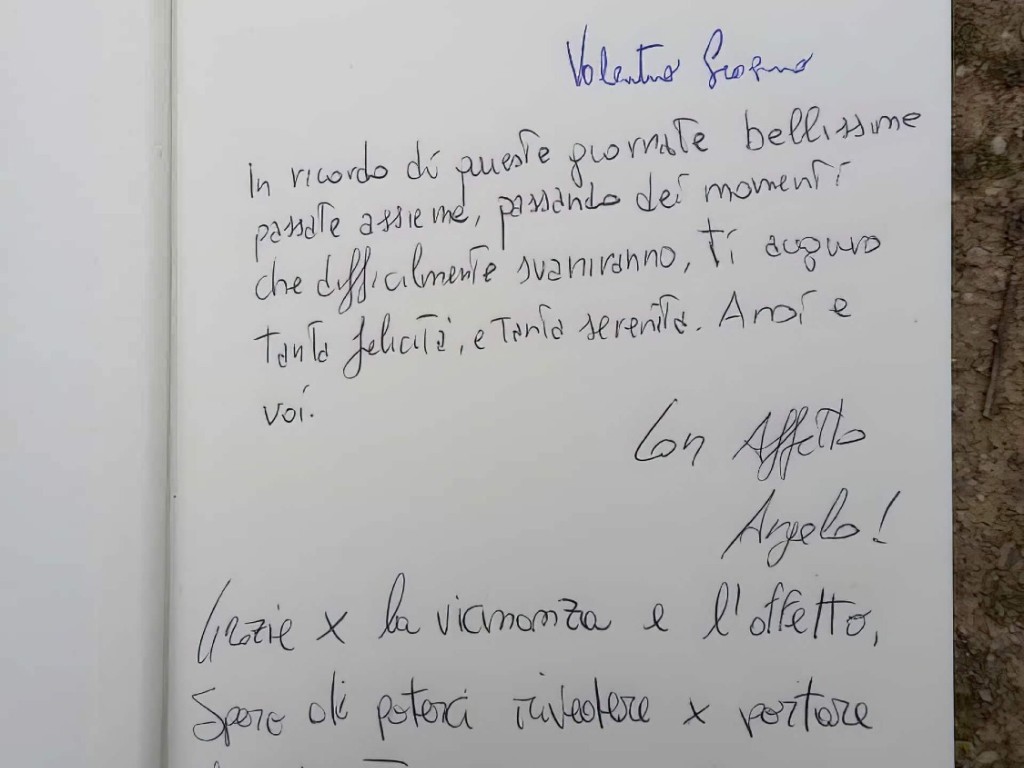 Valentino
In ricordo di queste giornate bellissime
passate assieme, passando dei momenti
che difficilmente svaniranno, ti auguro
tanta felicità, e tanta serenità. A noi e
voi.
Con Affetto
Angelo!
Grazie x la vicinanza e l'affetto,
Spero di poterci rivedere x portare